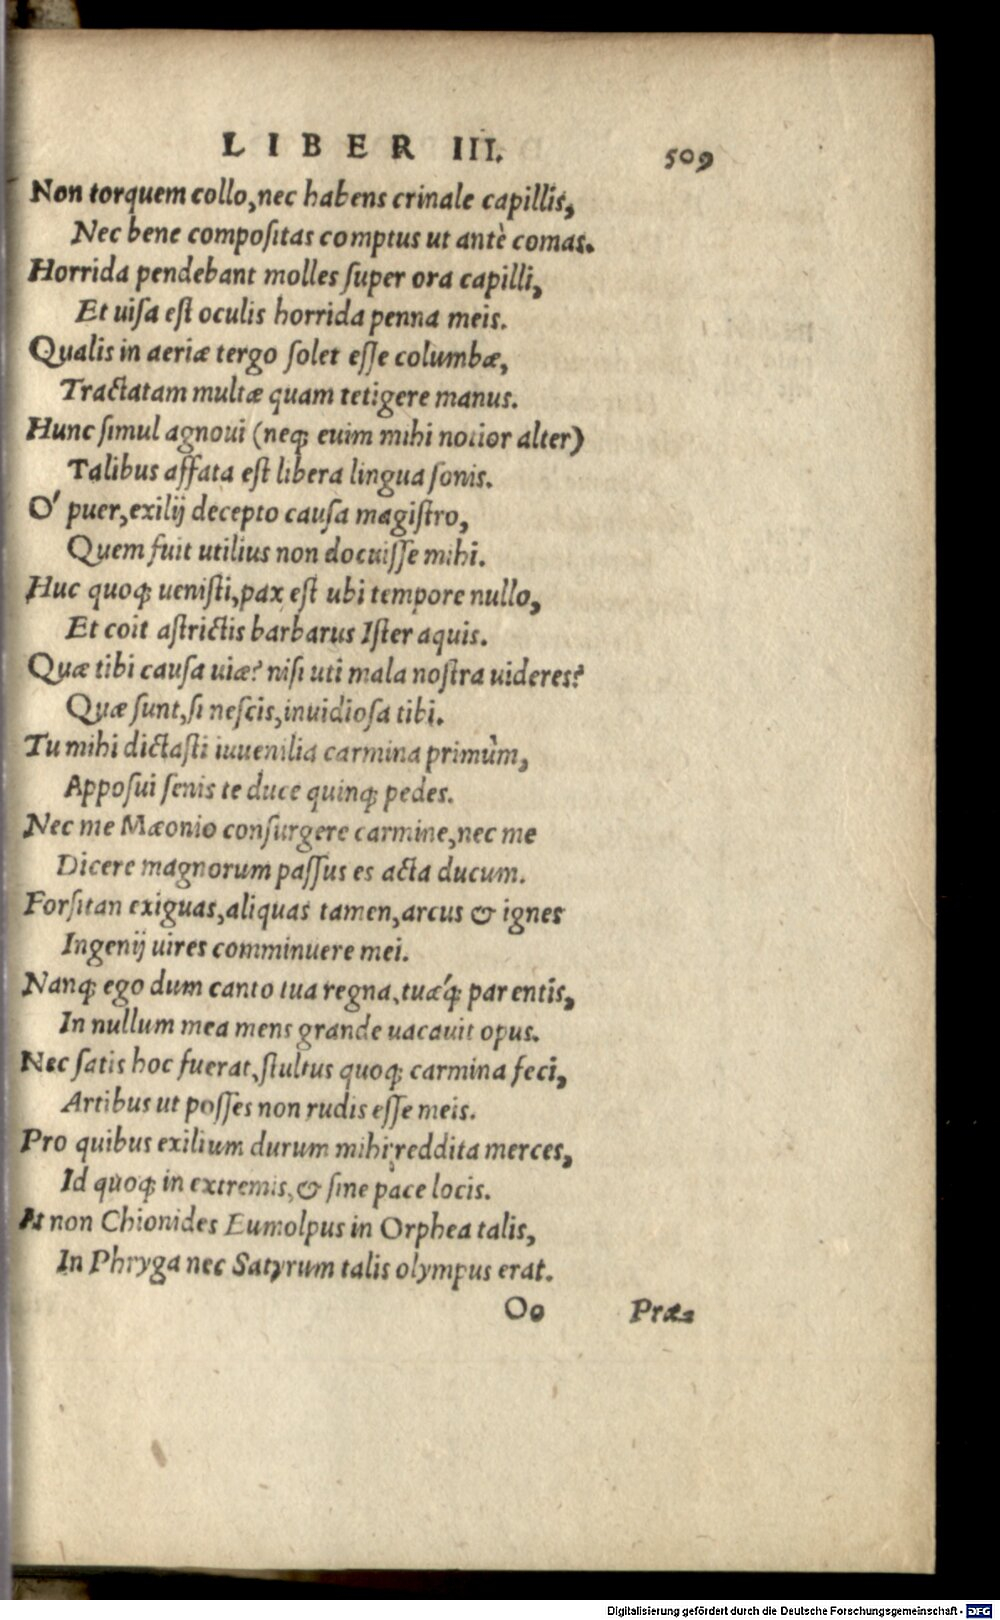 LIBER III. 509
Non torquem collo, nec habens crinale capillis,
Nec bene compoſitas comptus ut antè comas.
Horrida pendebant molles ſuper ora capilli,
Et uiſa eſt oculis horrida penna meis.
Qualis in aeriæ tergo ſolet eſſe columbæ,
Tractatam multæ quam tetigere manus.
Hunc ſimul agnoui (neq; euim mihi notior alter)
Talibus affata eſt libera lingua ſonis.
O' puer, exilij decepto cauſa magiſtro,
Quem fuit utilius non docuiſſe mihi.
Huc quoq; ueniſti, pax eſt ubi tempore nullo,
Et coit aſtrictis barbarus Iſter aquis.
Quæ tibi cauſa uiæ? niſi uti mala noſtra uideres?
Quæ ſunt, ſi neſcis, inuidioſa tibi.
Tu mihi dictaſti iuuenilia carmina primùm,
Appoſui ſenis te duce quinq; pedes.
Nec me Mæonio conſurgere carmine, nec me
Dicere magnorum paſſus es acta ducum.
Forſitan exiguas, aliquas tamen, arcus & ignes
Ingenij uires comminuere mei.
Nanq; ego dum canto tua regna, tuǽq; parentis,
In nullum mea mens grande uacauit opus.
Nec ſatis hoc fuerat, ſtultus quoq; carmina feci,
Artibus ut poſſes non rudis eſſe meis.
Pro quibus exilium durum mihi reddita merces,
Id quoq; in extremis, & ſine pace locis.
At non Chionides Eumolpus in Orphea talis,
In Phryga nec Satyrum talis olympus erat.
Oo Præ-
Digitalisierung gefördert durch die Deutsche Forschungsgemeinschaft - DFG